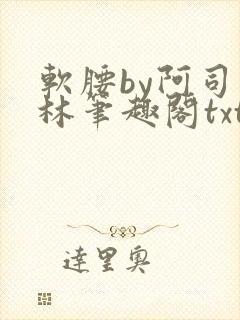 軟腰by阿司
林筆趣閣txt
達里奧